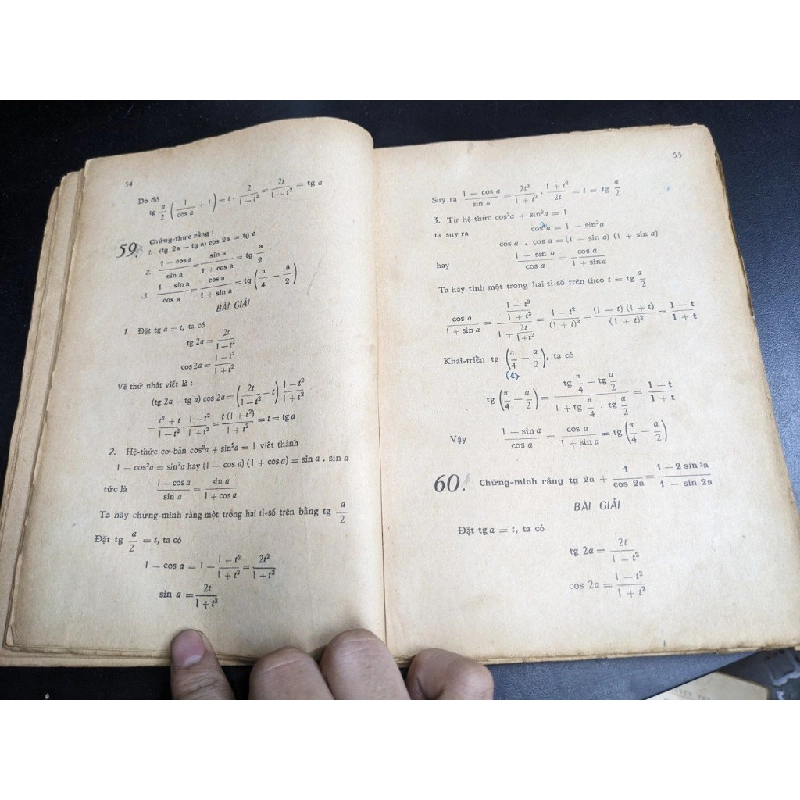 54
Do đó
tg a/2 (1/cos a + 1) = t · 2/1 − t² = 2t/1 − t² = tg a
59. Chứng-thực rằng :
1. (tg 2a − tg a) cos 2a = tg a
2. 1 − cos a/sin a = sin a/1 + cos a = tg a/2
3. 1 − sin a/cos a = cos a/1 + sin a = tg (π/4 − a/2)
BÀI GIẢI
1. Đặt tg a = t, ta có
tg 2a = 2t/1 − t²
cos 2a = 1 − t²/1 + t²
Vế thứ nhất viết là :
(tg 2a − tg a) cos 2a = (2t/1 − t² − t) 1 − t²/1 + t²
= t³ + t/1 − t² · 1 − t²/1 + t² = t (1 + t²)/1 + t² = t = tg a
2. Hệ-thức cơ-bản cos²a + sin²a = 1 viết thành
1 − cos²a = sin²a hay (1 − cos a) (1 + cos a) = sin a . sin a
tức là 1 − cos a/sin a = sin a/1 + cos a
Ta hãy chứng-minh rằng một trong hai tỉ-số trên bằng tg a/2
Đặt tg a/2 = t, ta có
1 − cos a = 1 − 1 − t²/1 + t² = 2t²/1 + t²
sin a = 2t/1 + t²
55
Suy ra 1 − cos a/sin a = 2t²/1 + t² · 1 + t²/2t = t = tg a/2
3. Từ hệ thức cos²a + sin²a = 1
ta suy ra cos²a = 1 − sin²a
cos a . cos a = (1 − sin a) (1 + sin a)
hay 1 − sin a/cos a = cos a/1 + sin a
Ta hãy tính một trong hai tỉ-số trên theo t = tg a/2
cos a/1 + sin a = 1 − t²/1 + t²/1 + 2t/1 + t² = 1 − t²/(1 + t)² = (1 − t) (1 + t)/(1 + t)² = 1 − t/1 + t
Khai-triển tg (π/4 − a/2), ta có
tg (π/4 − a/2) = tg π/4 − tg a/2/1 + tg π/4 . tg a/2 = 1 − t/1 + t
Vậy 1 − sin a/cos a = cos a/1 + sin a = tg (π/4 − a/2)
60. Chứng-minh rằng tg 2a + 1/cos 2a = 1 − 2 sin 2a/1 − sin 2a
BÀI GIẢI
Đặt tg a = t, ta có
tg 2a = 2t/1 − t²
cos 2a = 1 − t²/1 + t²